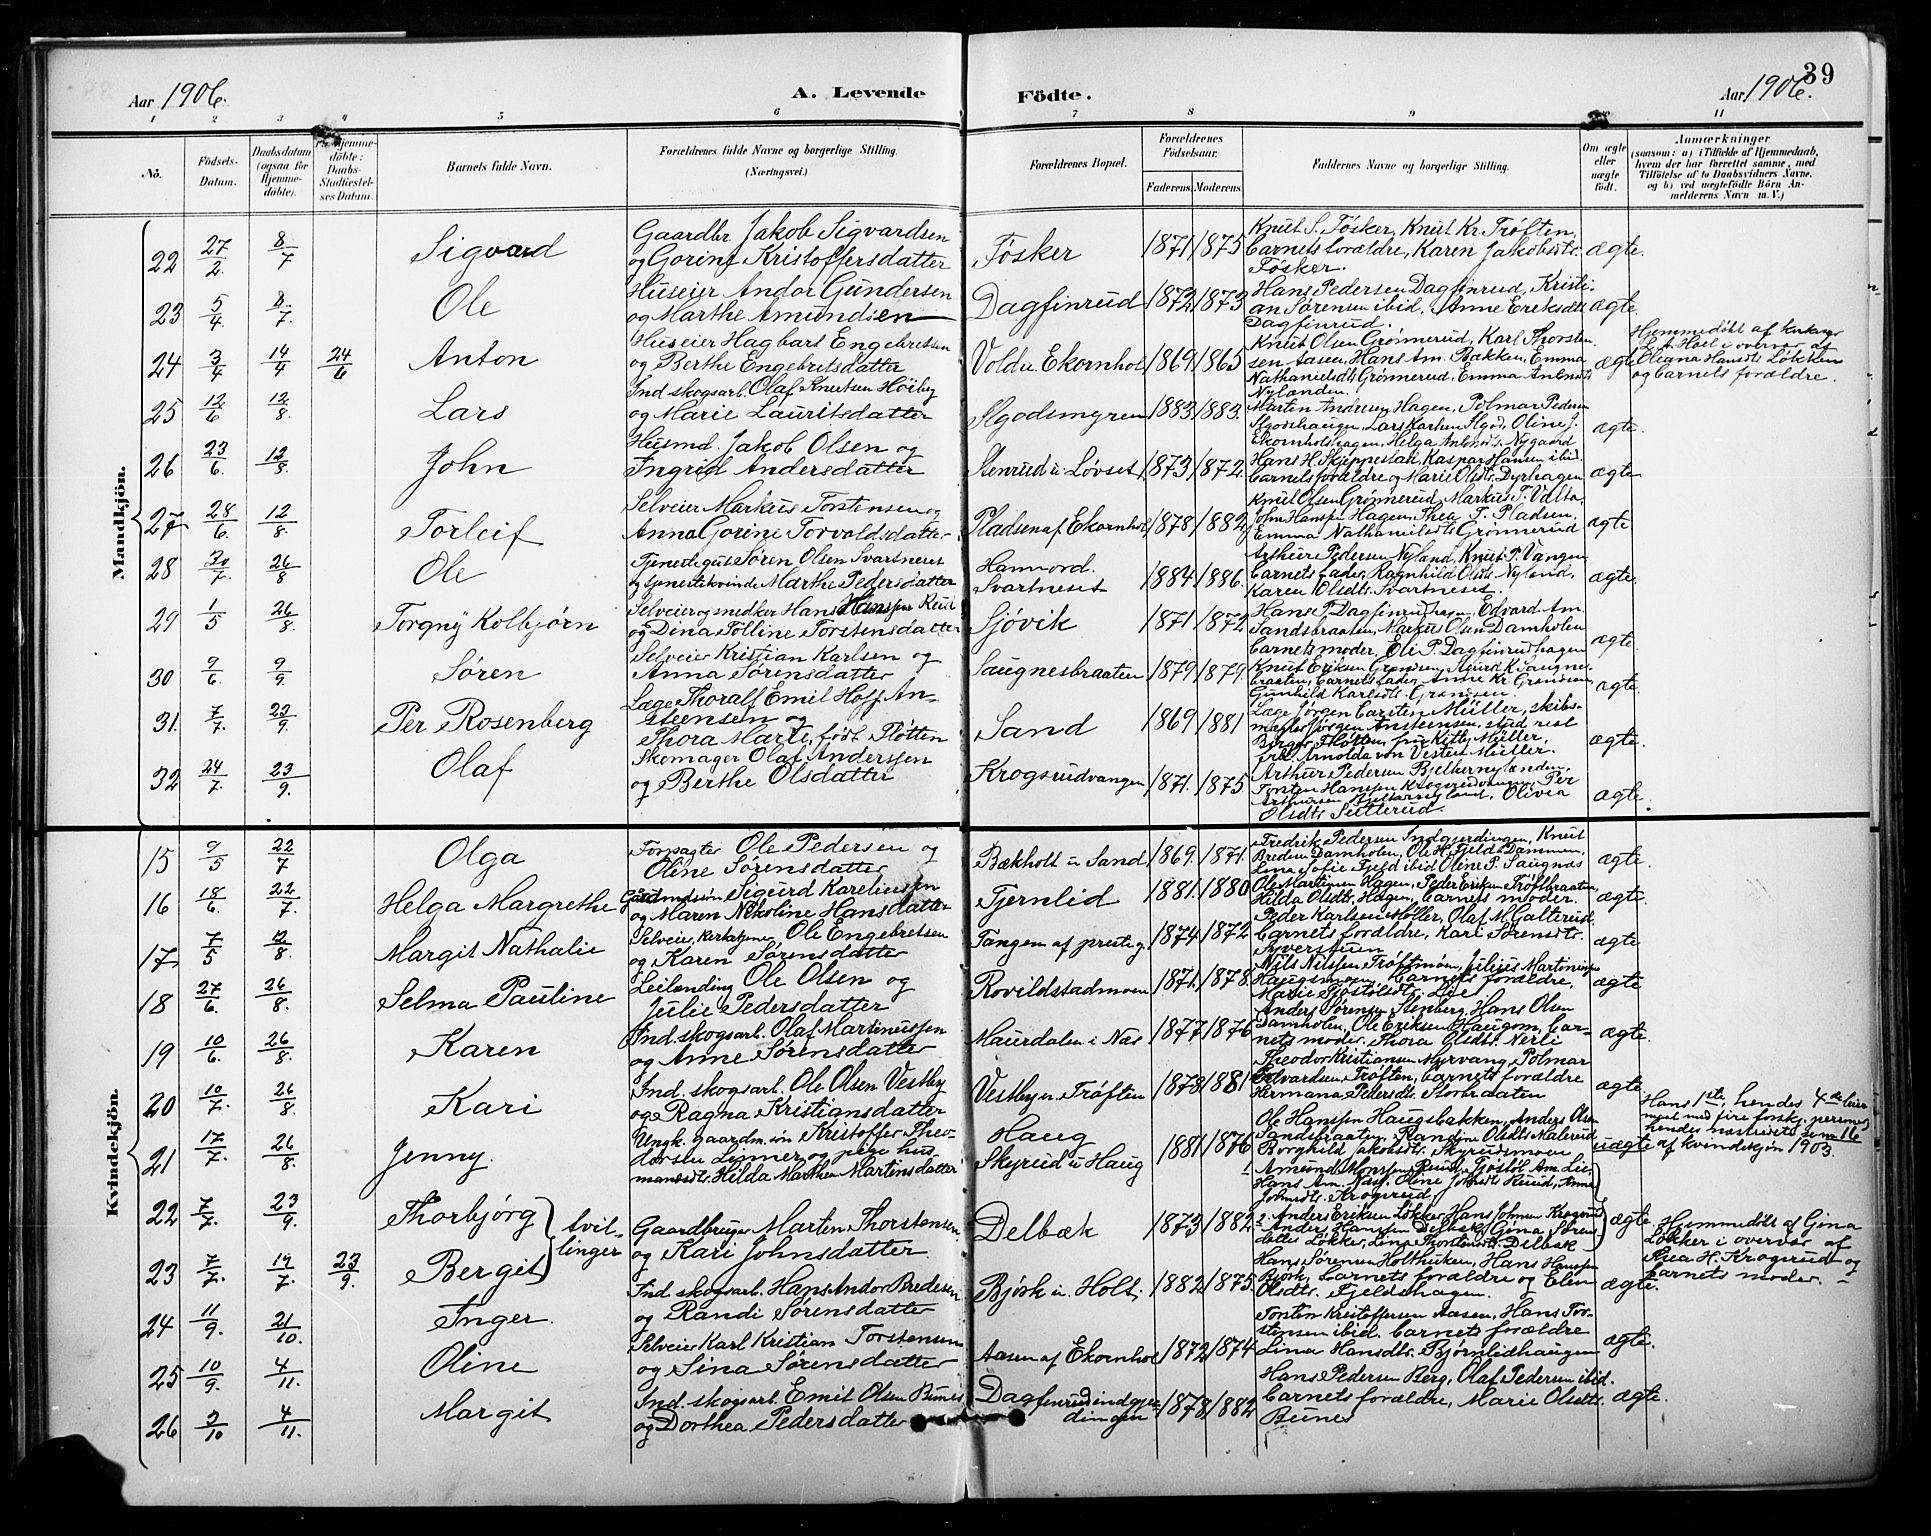 39
Aar 1906.
A. Levende Födte.
Aar 1906.
1 2 3 4 5 6 7 8 9 11
No.
Födsels-Datum.
Daabsdatum (ogsaa for Hjemme-döbte).
Hjemme-döbte: Daabs-Stadfæstel-ses Datum.
Barnets fulde Navn.
Forældrenes fulde Navne og borgerlige Stilling. (Næringsvei.)
Forældrenes Bopæl.
Forældrenes Födselsaar.
Faderens. Moderens.
Faddernes Navne og borgerlige Stilling.
Om ægte eller uægte födt.
Anmærkninger
(saasom: a) i Tilfælde af Hjemmedaab, hvem der har forrettet samme, med Tilföielse af to Daabsvidners Navne, og b) ved uægtefödte Börn An-melderens Navn m. V.)
Mandkjön.
22 27/2. 8/7 Sigvard Gaardbr Jakob Sigvardsen og Gorine Kristoffersdatter Fösker 1871 1875 Knut S. Fösker, Knut Kr. Tröften, barnets forældre, Karen Jakobsdtr. Fösker. ægte.
23 5/4. 8/7. Ole Huseier Andor Gundersen og Marthe Amundsen Dagfinrud 1872 1873 Hans Pedersen Dagfinrud, Kristian Sørensen ibid, Anne Eriksdtr Dagfinrud. ægte.
24 3/4 14/4 24/6 Anton Huseier Hagbart Engebretsen og Berthe Engebretsdatter Volden Ekornhol 1869 1865 Knut Olsen Grønnerud, Karl Thorstensen Aasen, Hans Am. Bakken, Emma Nathanielsdtr Grønnerud, Emma Antonsdtr Nylanden. ægte Hjemmedöbt af kirkesanger L. A. Hoel i overvær af Oleana Hansdtr Løkken og barnets forældre.
25 12/6 12/8. Lars Ind skogsarb. Olaf Knutsen Höiby og Marie Lauritsdatter Algodsmyren 1883 1883. Martin Andersen Hagen, Polmar Pedersen ægte.
26 23/6. 12/8. John Husmd. Jakob Olsen og Ingrid Andersdatter Stenrud u. Løvset 1873 1872. Hans H. Skjeppestak, Kaspar Hansen ibid. Barnets forældre og Marie Olsdtr. Dyrhagen ægte
27 28/6. 12/8. Torleif Selveier Markus Torstensen og Anna Gorine Torvaldsdatter Pladsen af Ekornhol 1878 1882 Knut Olsen Grønnerud, Markus T. Volla, John Hansen Hagen, Thea T. Pladsen, Emma Nathanielsdtr Grønnerud ægte
28 30/7. 26/8 Ole Tjenestegut Søren Olsen Svartneset og tjenestekvinde Marthe Pedersdatter Hannord. Svartneset 1884 1886. Arthur Pedersen Nyland, Knut P. Vangen barnets fader, Ragnhild Olsdtr. Nyland, Karen Olsdtr. Svartneset. ægte.
29 1/5 26/8. Torgny Kolbjørn Selveier og snedker Hans Hansen Ruud og Dina Tolline Torstensdatter Sjövik 1871 1872 Hans P. Dagfinrudhagen, Edvard Am. Sandsbraaten, Markus Olsen Damholen barnets moder, Eli P. Dagfinrudhagen ægte.
30 9/6. 9/9. Søren Selveier Kristian Karlsen og Anna Sørensdatter Saugnesbraaten 1879 1879. Knut Eriksen Grøndsen, Sigurd K. Saugnesbraaten, barnets fader, Anne Kr. Grøndsen, Gunhild Karlsdtr. Grøndsen. ægte.
31. 7/7. 23/9. Per Rosenberg Læge Thoralf Emil Hoff Ansteensen og Thora Marie, født Fløtten Sand 1869 1881 Læge Jörgen Carsten Müller, skibsmegler Jörgen Ansteensen, stud. real Birger Fløtten, fru Kitty Müller, frk. Arnolda von Westen Müller. ægte.
32 24/7. 23/9. Olaf Skomager Olaf Anderssen og Berthe Olsdatter Krogsrudvangen 1871. 1875 Arthur Pedersen Bjelkernylænden, Torsten Hansen Krogsrudvangen, Per Arthursen Bjelkernyland, Olivia Olsdtr. Setterud. ægte.
Kvindekjön.
15 9/5 22/7 Olga Forpagter Ole Pedersen og Oline Sørensdatter Bækholt u Sand 1869. 1871. Fredrik Pedersen Indgjerdingen, Knut Bredesen Damholen, Ole H. Fjeld Dammen, Lina Sofie Fjeld ibid Oline P. Saugnæs ægte.
16 18/6. 22/7. Helga Margrethe Gaardmdssøn Sigurd Kareliussen og Maren Nikoline Hansdatter Tjernlid 1881 1880 Ole Martinsen Hagen, Peder Eriksen Tröftbraaten, Hilda Olsdtr. Hagen, barnets moder. ægte.
17. 7/5 12/8. Margit Nathalie Selveier, Kirketjener Ole Engebretsen og Karen Sørensdatter Tangen af prestg. 1874 1872 Peder Karlsen Møller, Olaf M. Galterud, barnets forældre, Kari Sørensdtr. Syverstuen ægte
18 27/6. 26/8. Selma Pauline Leilending Ole Olsen og Julie Pedersdatter Rovildstadmoen 1871. 1878. Nils Nilssen Tröftmoen, Julius Martinussen Haugsmoen, barnets forældre, Marie Lie ægte
19 10/6. 26/8. Karen Ind. skogsarb. Olaf Martinussen og Anne Sørensdatter Maurdalen i Næs 1877 1876 Anders Sørensen Stenberg, Hans Olsen Damholen, Ole Eriksen Haugom, barnets moder, Thora Olsdtr. Nerli ægte.
20 10/7. 26/8. Kari Ind. skogsarb. Ole Olsen Vestby og Ragna Kristiansdatter Vestbyen Tröften 1878 1881 Theodor Kristiansen Myrvang, Polmar Edvardsen Tröften, barnets forældre Hermana Pedersdtr. Storbraaten ægte
21 17/7. 26/8. Jenny. Ungk. gaardm.søn Kristoffer Theodorsen og pige husmandsdtr. Hilda Marthea Martinsdatter Haug Skyrud u Haug 1881 1876 Ole Hanssen Haugsbakken, Anders Olsen Sandsbraaten, Randine Olsdtr Kalerud, Borghild Jakobsdtr. Skyrudsmoen uægte Hans 1ste, hendes 4de leiermaal med fire forskj. personer, hendes næstsidste som 16 af kvindekjön 1903.
22 7/7. 23/9. Thorbjörg tvillinger Gaardbruger Martin Thorstensen og Kari Johnsdatter Delbæk 1873 1882 1 Amund Monssen Ruud, Tostol Am. Lie, Hans Am. Næss, Oline Johnsdtr Ruud, Anne Johnsdtr. Krogsrud, 2: Anders Eriksen Løkker Hans Johnsen Krogsrud Anders Hanssen Delbæk, Gina Sørensdatter Løkker, Lina Thorstensdtr. Delbæk ægte.
23 7/7. 19/7. 23/9. Bergit Hjemmedöbt af Gina Løkker i overvær af Thea H. Krogsrud og barnets moder.
24 11/9. 21/10. Inger. Ind. skogsarb. Hans Andor Bredesen og Randi Sørensdatter Björk u. Holt. 1882 1875. Hans Sørensen Holthuken, Hans Hansen Björk, barnets forældre og Elen Olsdtr. Fjeldshagen. ægte.
25 10/9. 4/11. Oline Selveier Karl Kristian Torstensen og Sina Sørensdatter Aasen af Ekornhol 1872 1874 Torsten Kristoffersen Aasen, Hans Torstensen ibid. barnets forældre Lina Hansdtr. Björnlidhaugen ægte.
26 3/10 4/11. Margit Ind. skogsarb. Emil Olsen Bunes og Dorthea Pedersdatter Dagfinrudindgjerdingen 1878 1882 Hans Pedersen Berg, Olaf Pedersen ibid. barnets forældre, Marie Olsdtr. Bunes ægte.